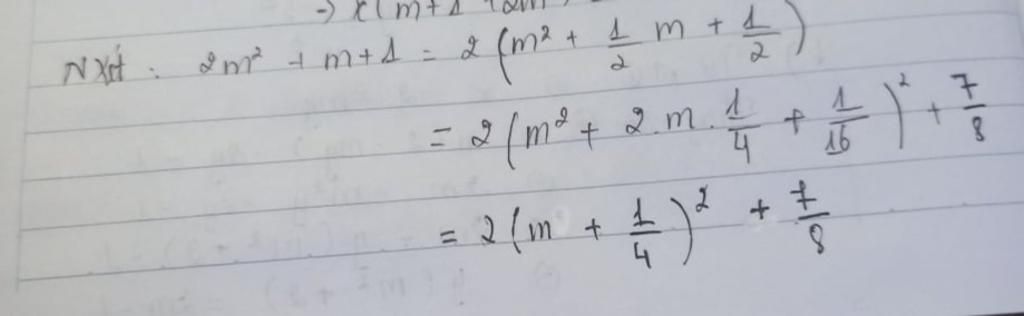 -> x(m+1
Nxét : 2m² + m+1 = 2 (m² + 1/2 m + 1/2)
= 2 (m² + 2.m.1/4 + 1/16)² + 7/8
= 2 (m + 1/4)² + 7/8